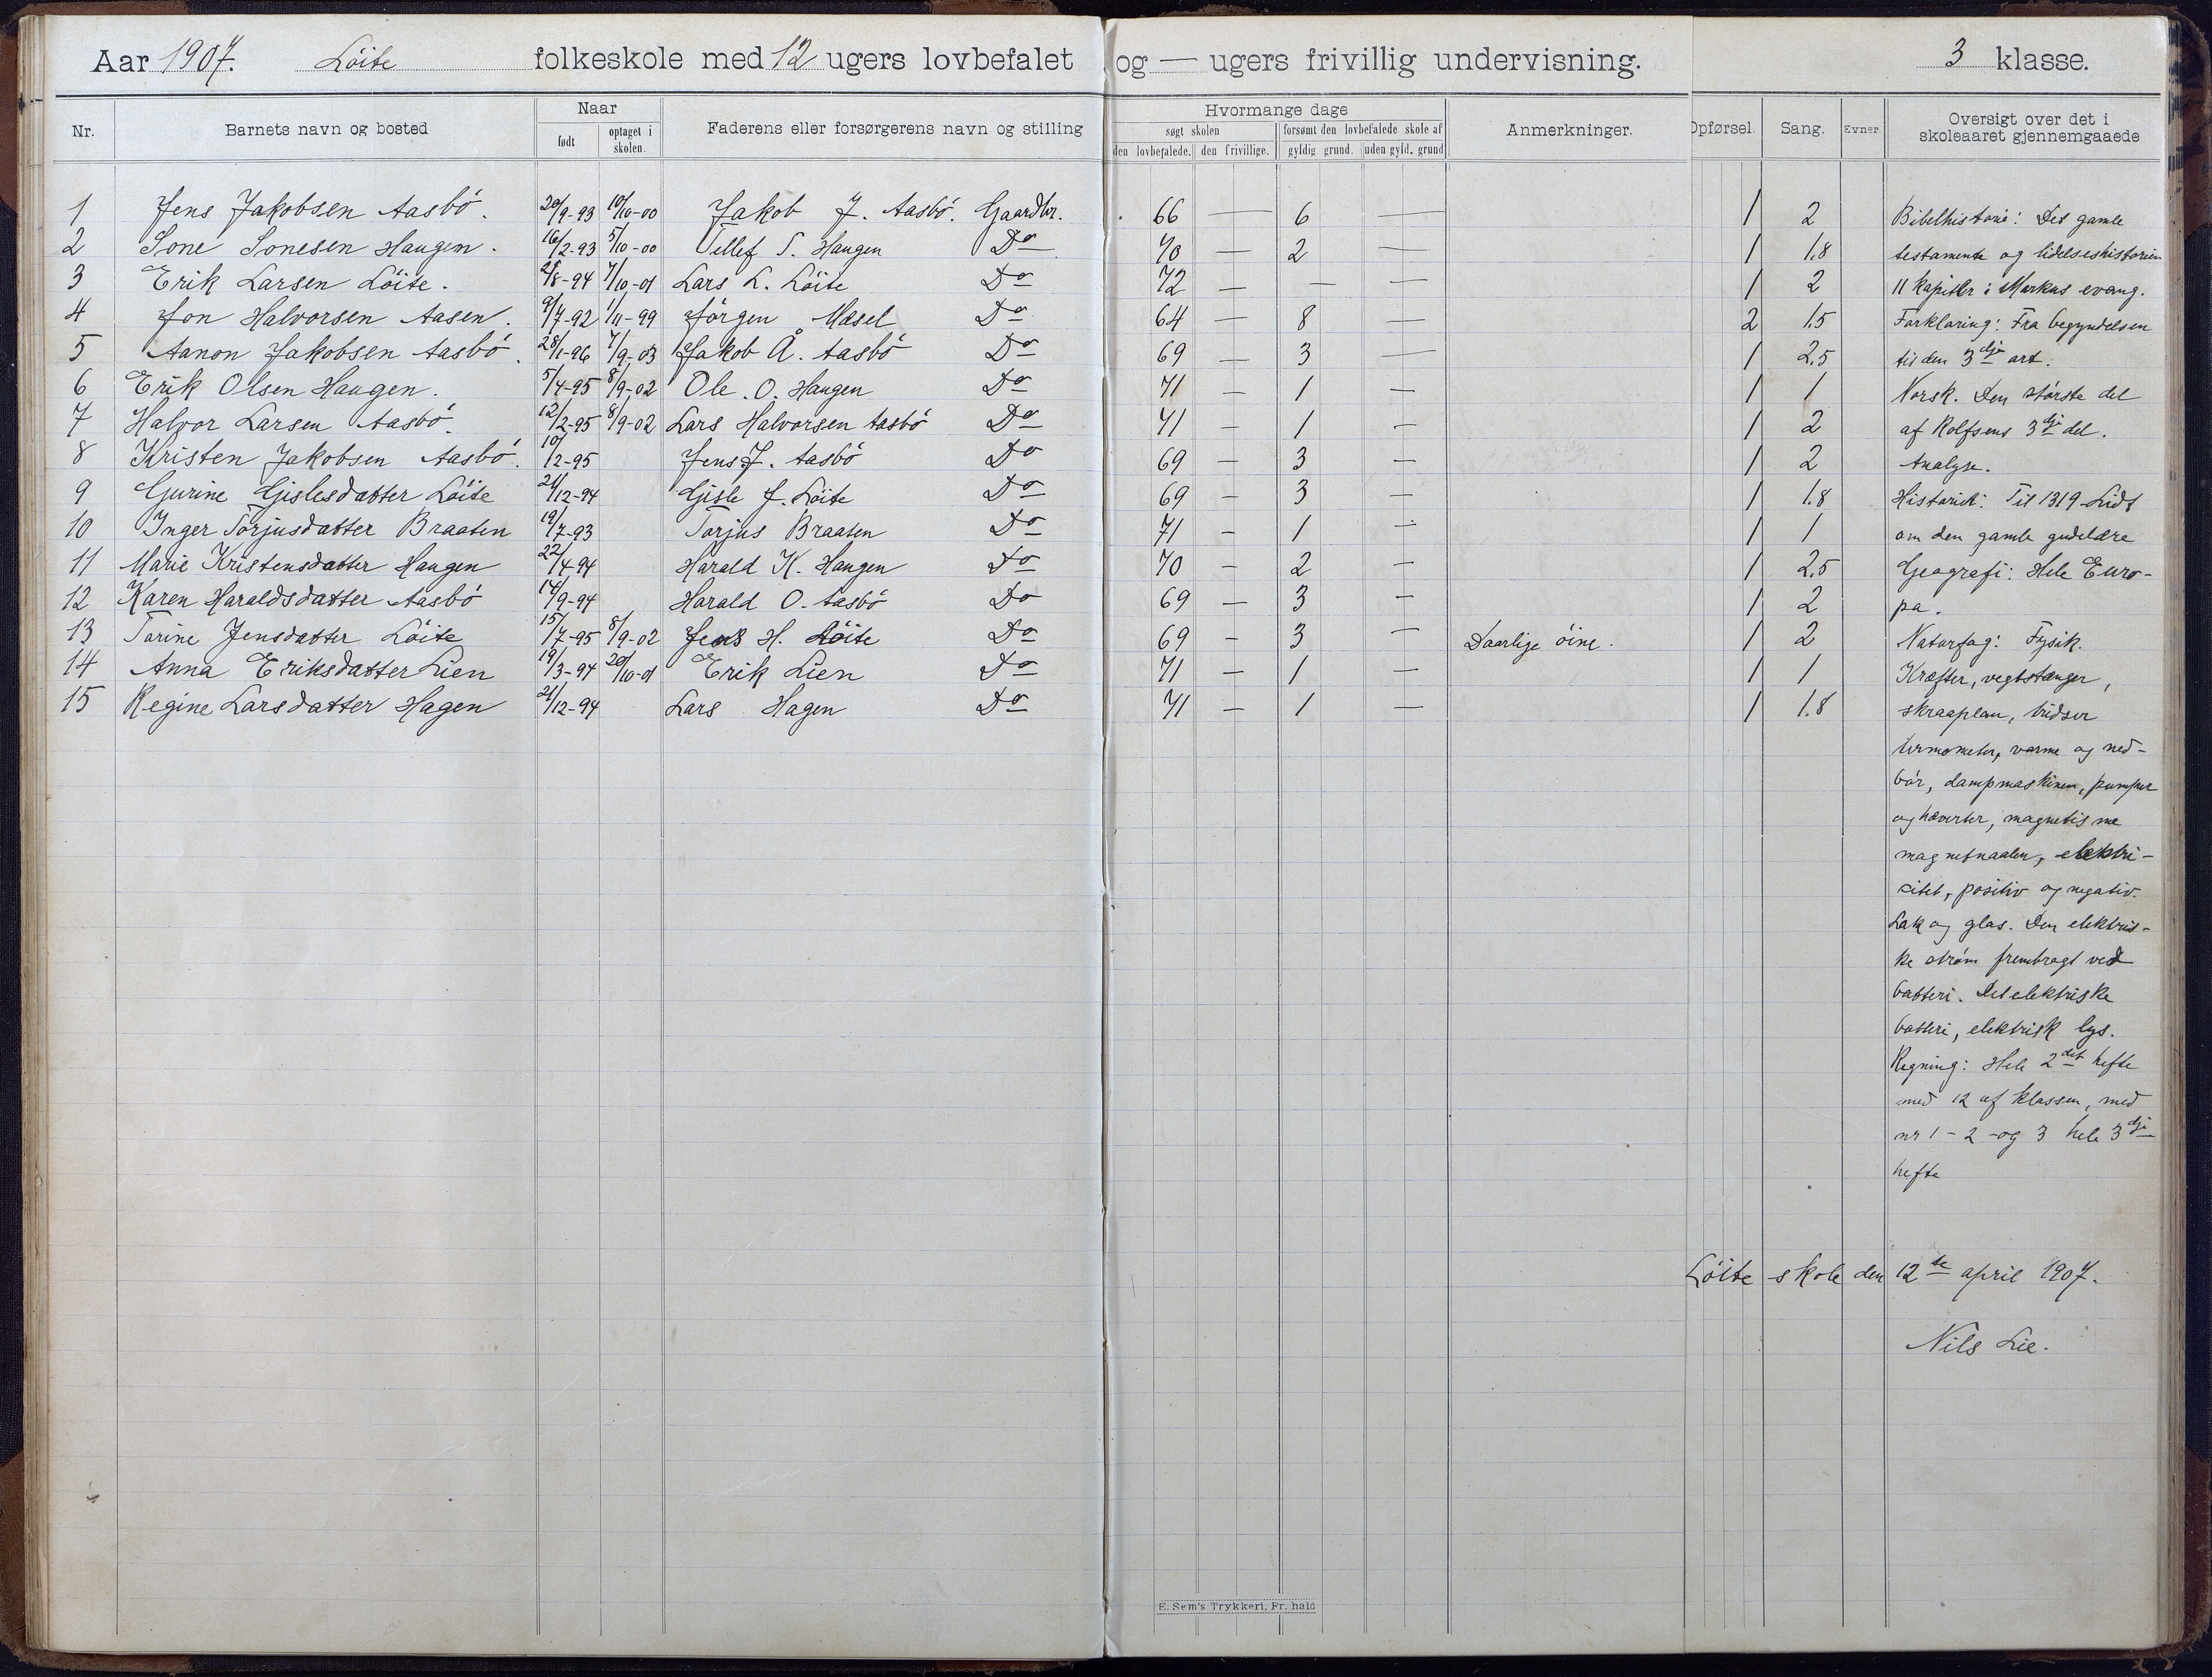 Aar 1907. Löite folkeskole med 12 ugers lovbefalet og — ugers frivillig undervisning. 3 klasse.
Nr. Barnets navn og bosted Naar født optaget i skolen. Faderens eller forsørgerens navn og stilling Hvormange dage søgt skolen den lovbefalede. den frivillige. forsømt den lovbefalede skole af gyldig grund. uden gyld. grund Anmerkninger. Opførsel. Sang. Evner Oversigt over det i skoleaaret gjennemgaaede
1 Jens Jakobsen Aasbö. 20/9-93 10/10-00 Jakob J. Aasbö. Gaardbr. 66 — 6 — 1 2 Bibelhistorie: Det gamle
2 Tone Tonesen Haugen. 16/2-93 5/10-00 Tellef T. Haugen Do 70 — 2 — 1 1.8 testamente og lidelseshistorien
3 Erik Larsen Löite. 25/8-94 7/10-01 Lars L. Löite Do 72 — — — 1 2 11 kapitler i Markus evang.
4 Jon Halvorsen Aasen. 9/7-92 1/11-99 Jörgen Mæsel Do 64 — 8 — 2 1.5 Forklaring: Fra begyndelsen
5 Aanon Jakobsen Aasbö. 28/1-96 7/9-03 Jakob Å. Aasbö Do 69 — 3 — 1 2.5 til den 3dje art.
6 Erik Olsen Haugen. 5/4-95 8/9-02 Ole. O. Haugen Do 71 — 1 — 1 1 Norsk. Den störste del
7 Halvor Larsen Aasbö. 12/2-95 8/9-02 Lars Halvorsen Aasbö Do 71 — 1 — 1 2 af Rolfsens 3dje del.
8 Kristen Jakobsen Aasbö. 10/2-95 Jens J. Aasbö Do 69 — 3 — 1 2 Analyse.
9 Gurine Gislesdatter Löite 21/12-94 Gisle J. Löite Do 69 — 3 — 1 1.8 Historie: Til 1319 Lidt
10 Inger Torjusdatter Braaten 19/7-93 Torjus Braaten Do 71 — 1 — 1 1 om den gamle gudelære
11 Marie Kristensdatter Haugen 22/4-94 Harald K. Haugen Do 70 — 2 — 1 2.5 Geografi: Hele Euro-
12 Karen Haraldsdatter Aasbö 14/9-94 Harald O. Aasbö Do 69 — 3 — 1 2 pa.
13 Tarine Jensdatter Löite 15/7-95 8/9-02 Jens H. Löite Do 69 — 3 — Daarlige öine. 1 2 Naturfag: Fysik.
14 Anna Eriksdatter Lien 19/3-94 20/10-01 Erik Lien Do 71 — 1 — 1 1 Kræfter, vegtstænger,
15 Regine Larsdatter Hagen 21/12-94 Lars Hagen Do 71 — 1 — 1 1.8 skraaplan, tridser
termometer, varme og ned-
bör, dampmaskinen, pumper
og hæverter, magnetisme
magnetnaalen, elektri-
citet, positiv og negativ.
Lak og glas. Den elektris-
ke ström frembragt ved
batteri. Det elektriske
batteri, elektrisk lys.
Regning: Hele 2det hefte
med 12 af klassen, med
nr 1 - 2 - og 3 hele 3dje
hefte
Löite skole den 12te april 1907.
Nils Lie.
E. Sem's Trykkeri, Fr. hald